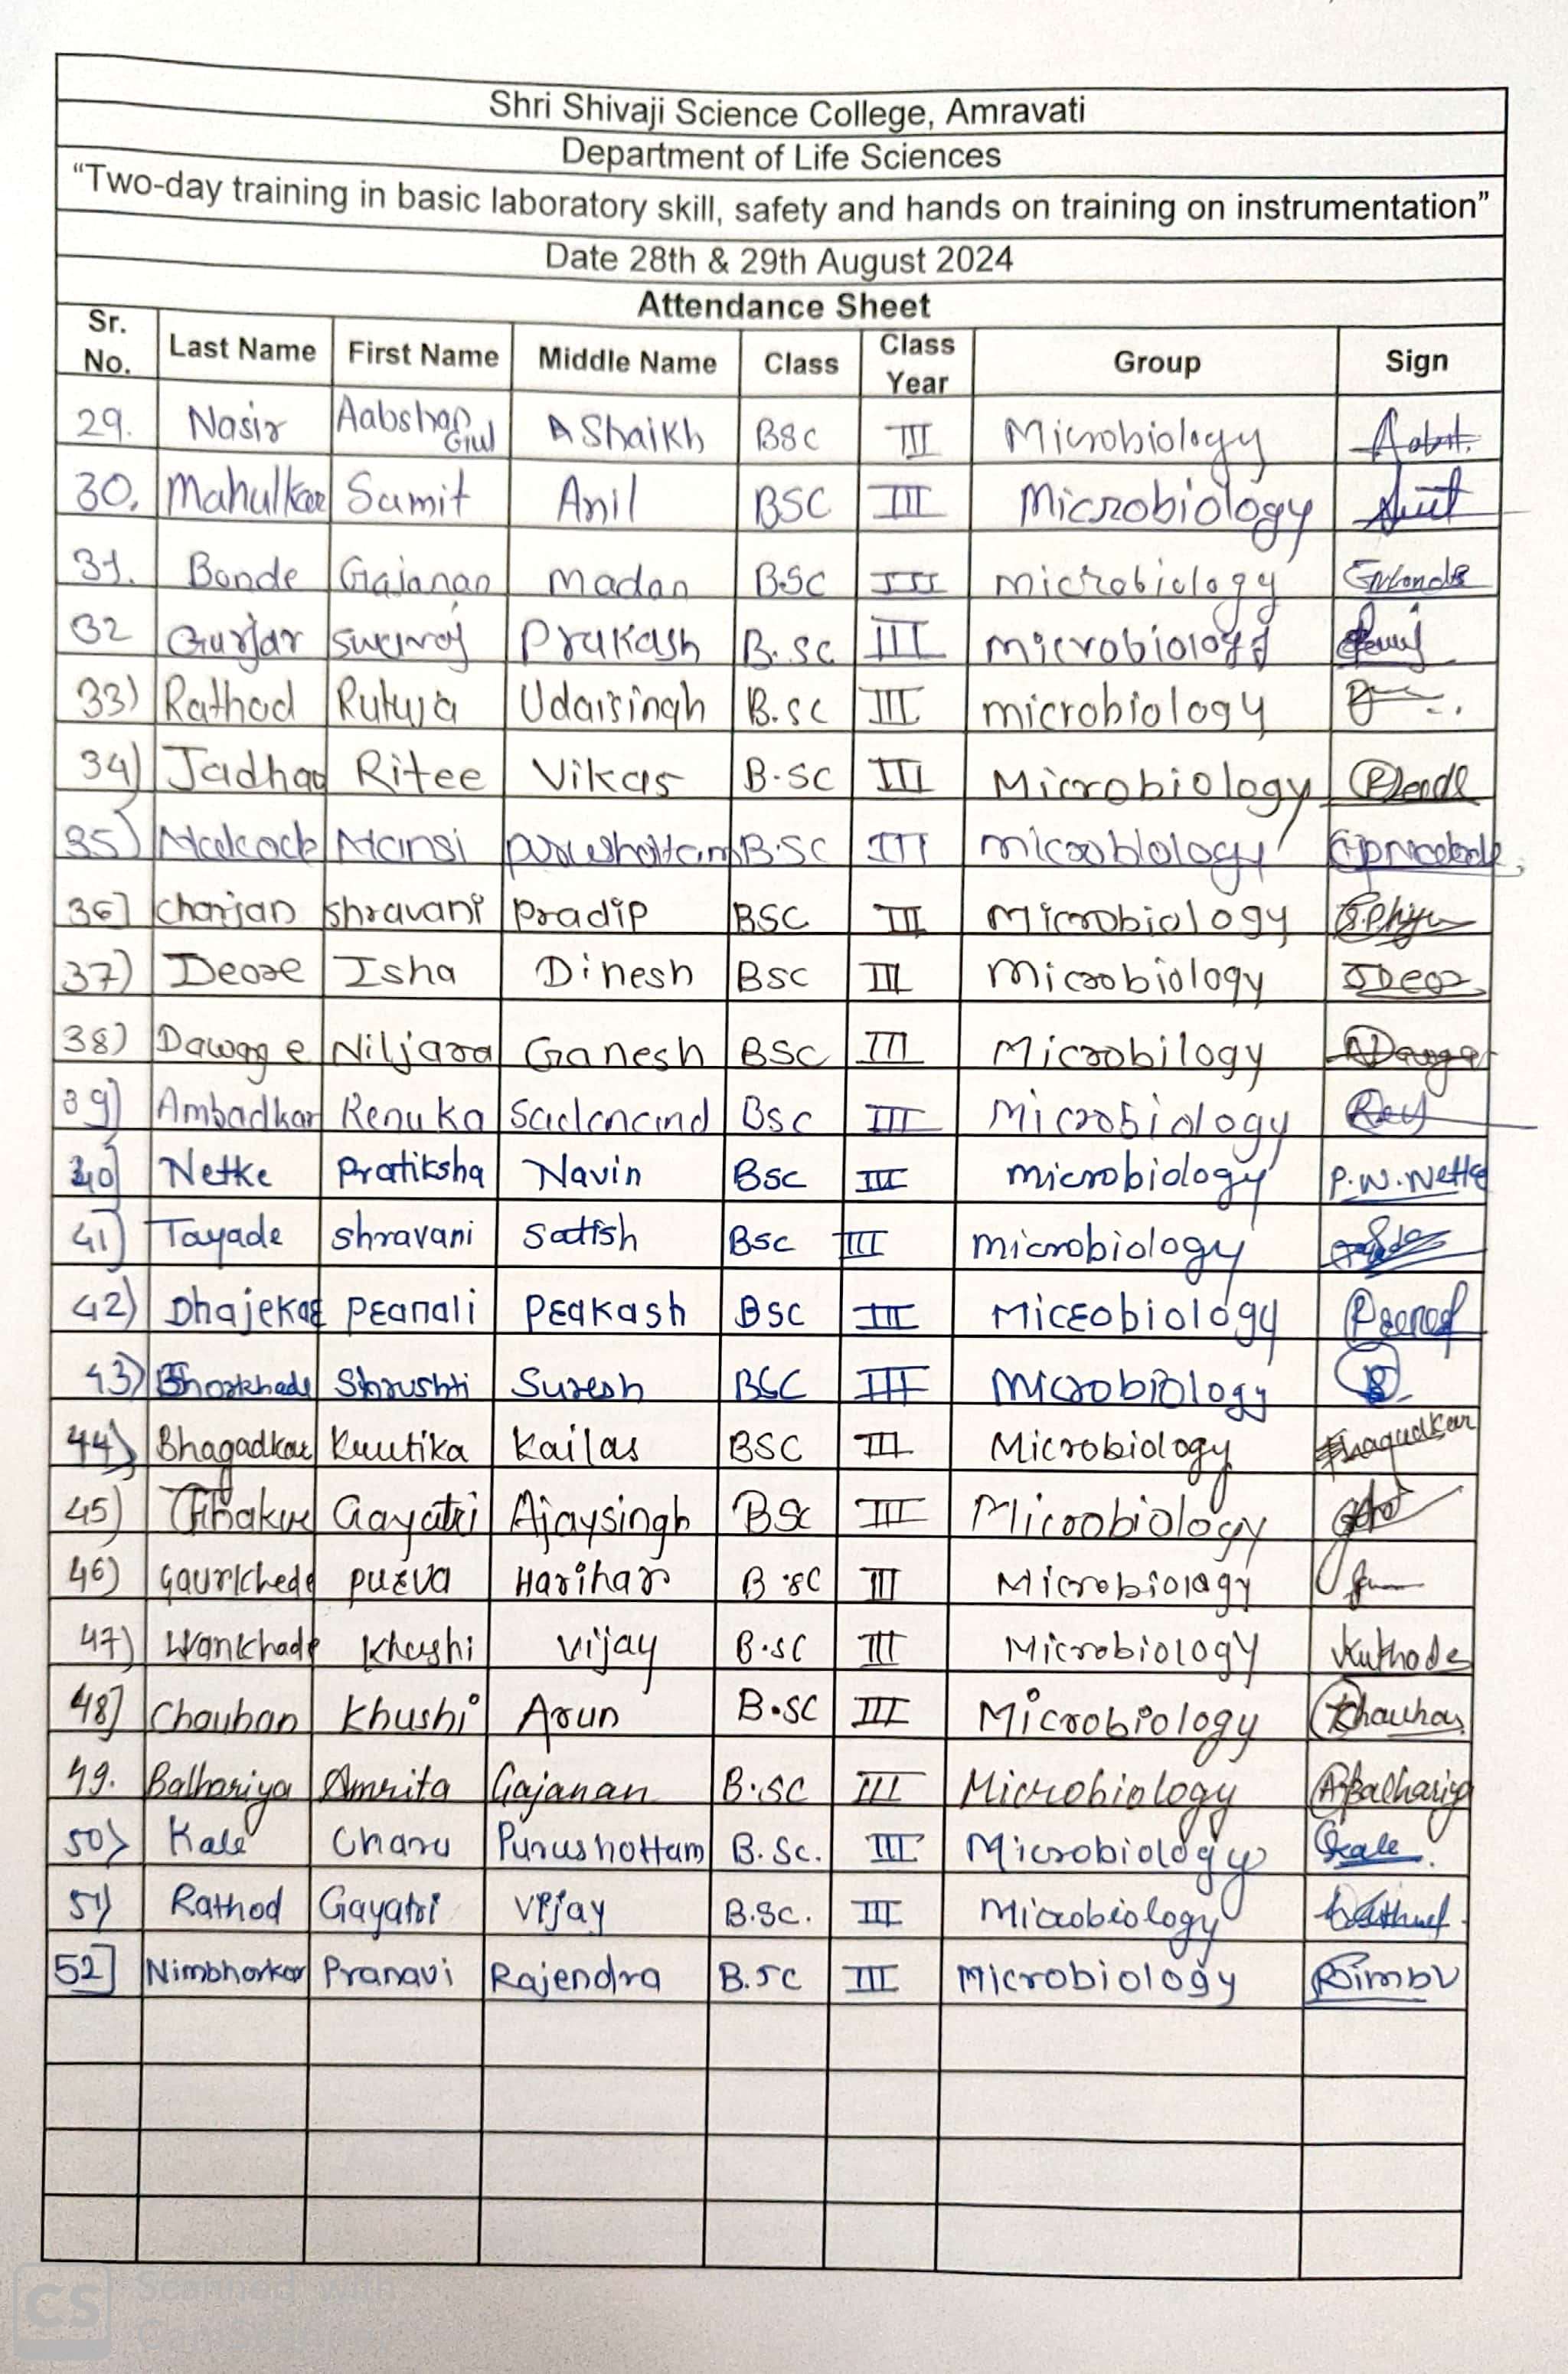 Shri Shivaji Science College, Amravati
Department of Life Sciences
"Two-day training in basic laboratory skill, safety and hands on training on instrumentation"
Date 28th & 29th August 2024
Attendance Sheet
Sr. No. Last Name First Name Middle Name Class Class Year Group Sign
29. Nasir Aabshar Gul A Shaikh BSC III Microbiology
30. Mahulkar Sumit Anil BSC III Microbiology
31. Bonde Gajanan Madan B.Sc III microbiology
32 Gurjar swaraj Prakash B.sc III microbiology
33) Rathod Rutuja Udaisingh B.sc III microbiology
34) Jadhao Ritee Vikas B.sc III Microbiology
35) Mansi purushottam B.SC III microbiology
36] charjan shravani pradip BSC III Microbiology
37) Deore Isha Dinesh BSC III Microbiology
38) Dawange Niljara Ganesh BSC III Microbilogy
39) Ambadkar Renuka Sadanand Bsc III Microbiology
40) Netke Pratiksha Navin Bsc III microbiology P.N.Netke
41) Tayade shravani Satish Bsc III microbiology
42) Dhajekar Pranali Prakash BSC III Microbiology
43) Shrushti Suresh BSC III Microbiology
44) Bhagadkar Krutika Kailas BSC III Microbiology Bhagadkar
45) Thakur Gayatri Ajaysingh BSc III Microbiology
46) Gaurkhede purva Harihar B.sc III Microbiology
47) Wankhade Khushi Vijay B.sc III Microbiology
48] Chauhan Khushi Arun B.SC III Microbiology Khauhan
49. Balhariya Amrita Gajanan B.SC III Microbiology ABalhariya
50) Kale Charu Purushottam B.Sc. III Microbiology Ckale
51) Rathod Gayatri Vijay B.Sc. III Microbiology
52] Nimbhorkar Pranavi Rajendra B.Sc III Microbiology
CS Scanned with
CamScanner